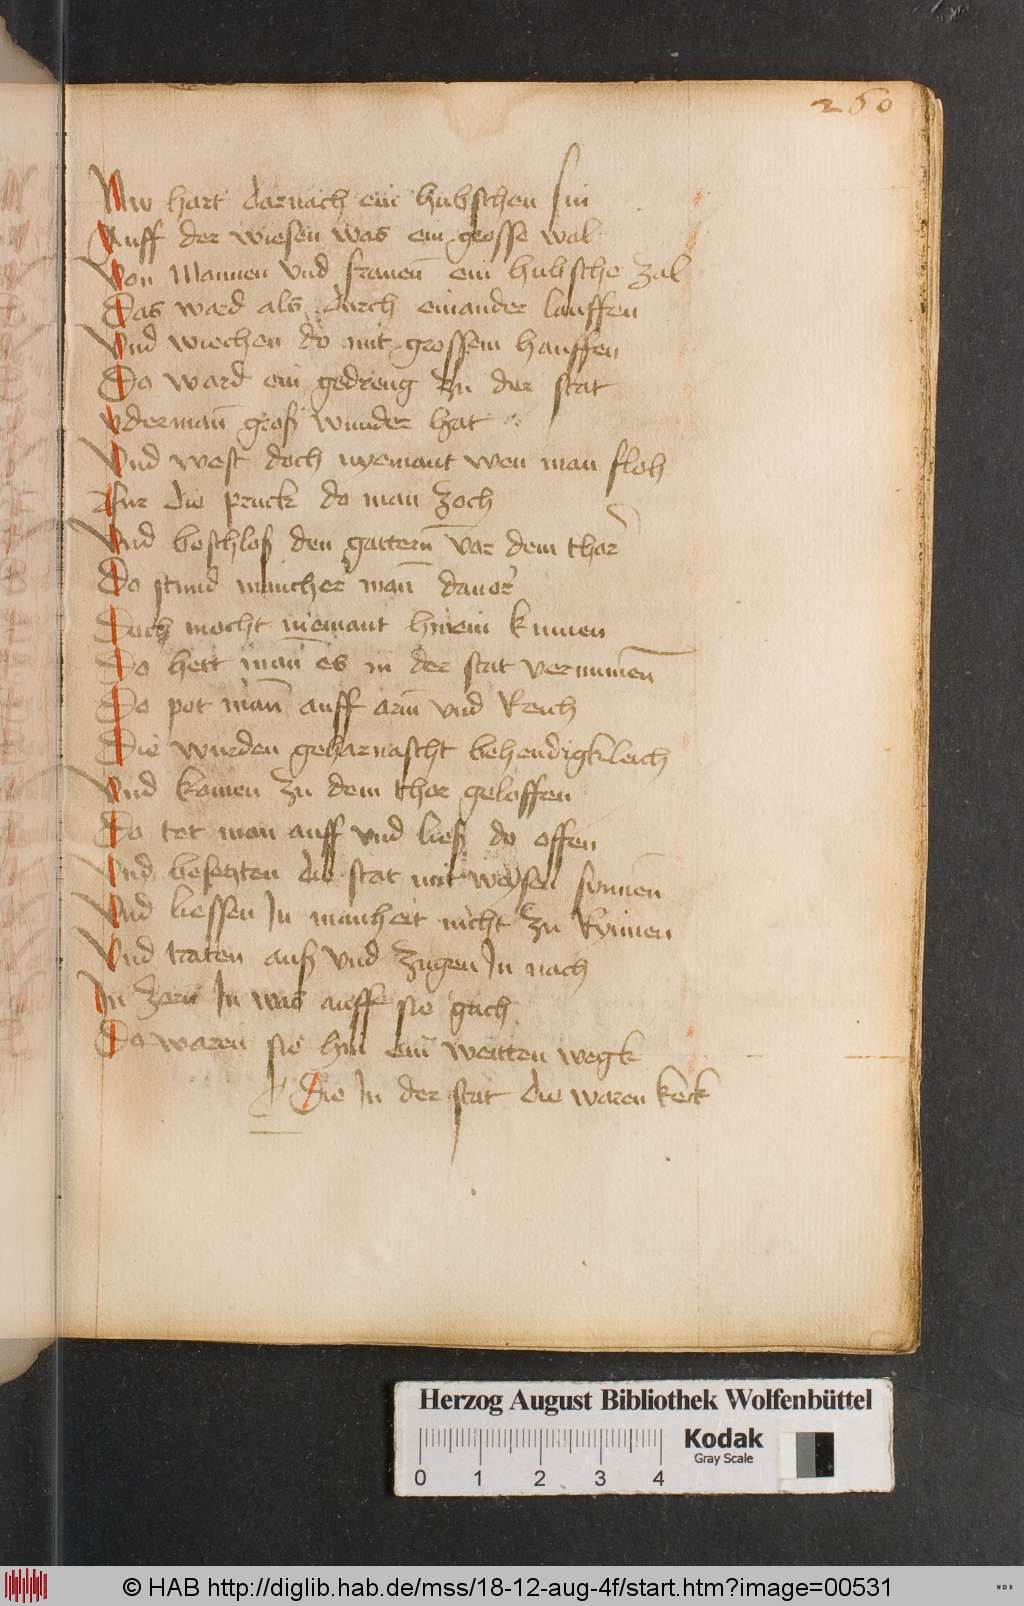 260
Nw hort darnach ein hubschen sin
Auff der wiesen was ein grosse wal
Von Mannen vnd frauen ein hubsche zal
Das ward als durch einander lauffen
Vnd wiechen do mit grossem hauffen
Do ward ein gedreng zu der stat
yderman groß wunder hat
Vnd west doch nyemant wen man floh
Fur die pruck do man zoch
Vnd beschloß den gattern vor dem thor
Do stund mancher man davor
Doch mocht niemant hinein kumen
Do hett man es in der stat vernumen
Do pot man auff arm vnd Reich
Die wurden geharnascht behendigkleich
Vnd komen zu dem thor geloffen
Do tet man auff vnd ließ do offen
Vnd besetzten die stat mit weysen synnen
Vnd liessen In manheit nicht zu Rynnen
Vnd traten auß vnd zugen In nach
In zorn In was auff sie gach
Do waren sie hin ein weitten wegk
Die In der stat die waren keck
Herzog August Bibliothek Wolfenbüttel
Kodak
Gray Scale
0 1 2 3 4
© HAB http://diglib.hab.de/mss/18-12-aug-4f/start.htm?image=00531